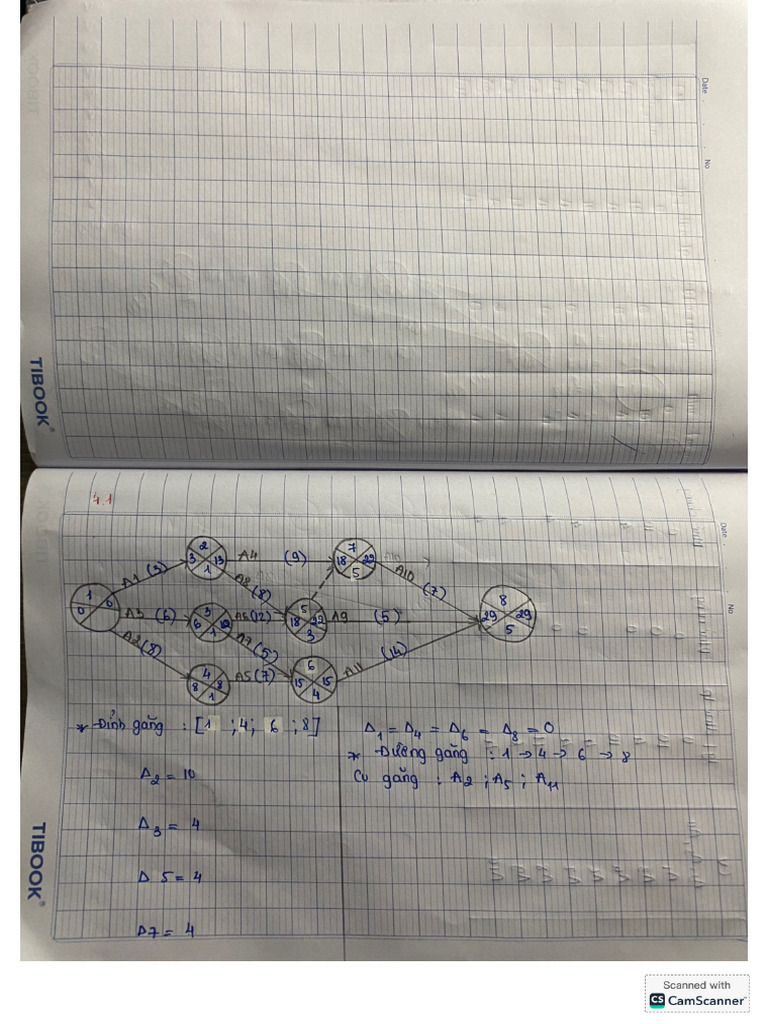 Date
No
TIBOOK
4.1
Date
No
2
3 13
1
A4 (9)
7
18 22
5
A1 (3)
A8 (8)
A10
(7)
1
0 0
A3 (6)
3
6
1
A6 (12)
5
18 22
3
A9 (5)
8
29 29
5
A2 (8)
A7 (5)
4
8 8
1
A5 (7)
6
15 15
4
A11 (14)
* Đỉnh găng : [1 ; 4 ; 6 ; 8]
Δ2 = 10
Δ3 = 4
Δ 5 = 4
Δ7 = 4
Δ1 = Δ4 = Δ6 = Δ8 = 0
* Đường găng : 1 → 4 → 6 → 8
Cv găng : A2 ; A5 ; A11
TIBOOK
Scanned with
CS CamScanner